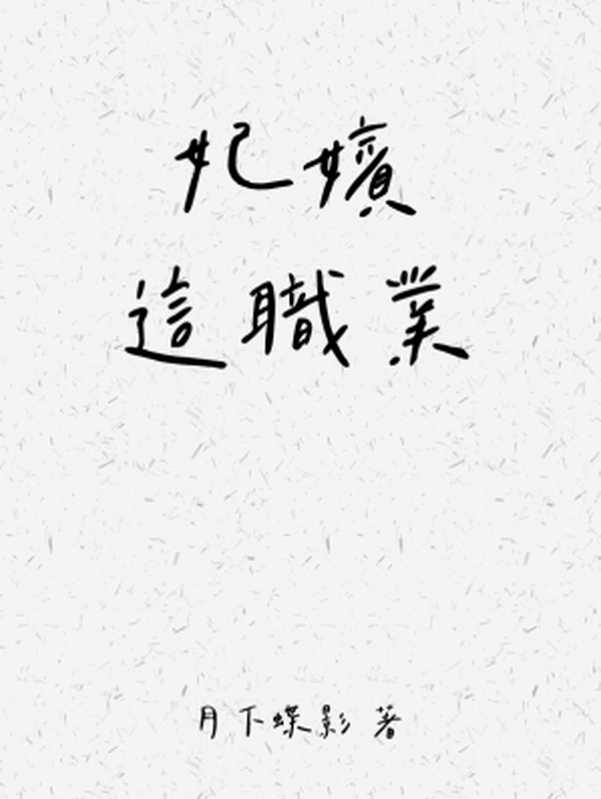 妃嬪
這職業
月下蝶影 著